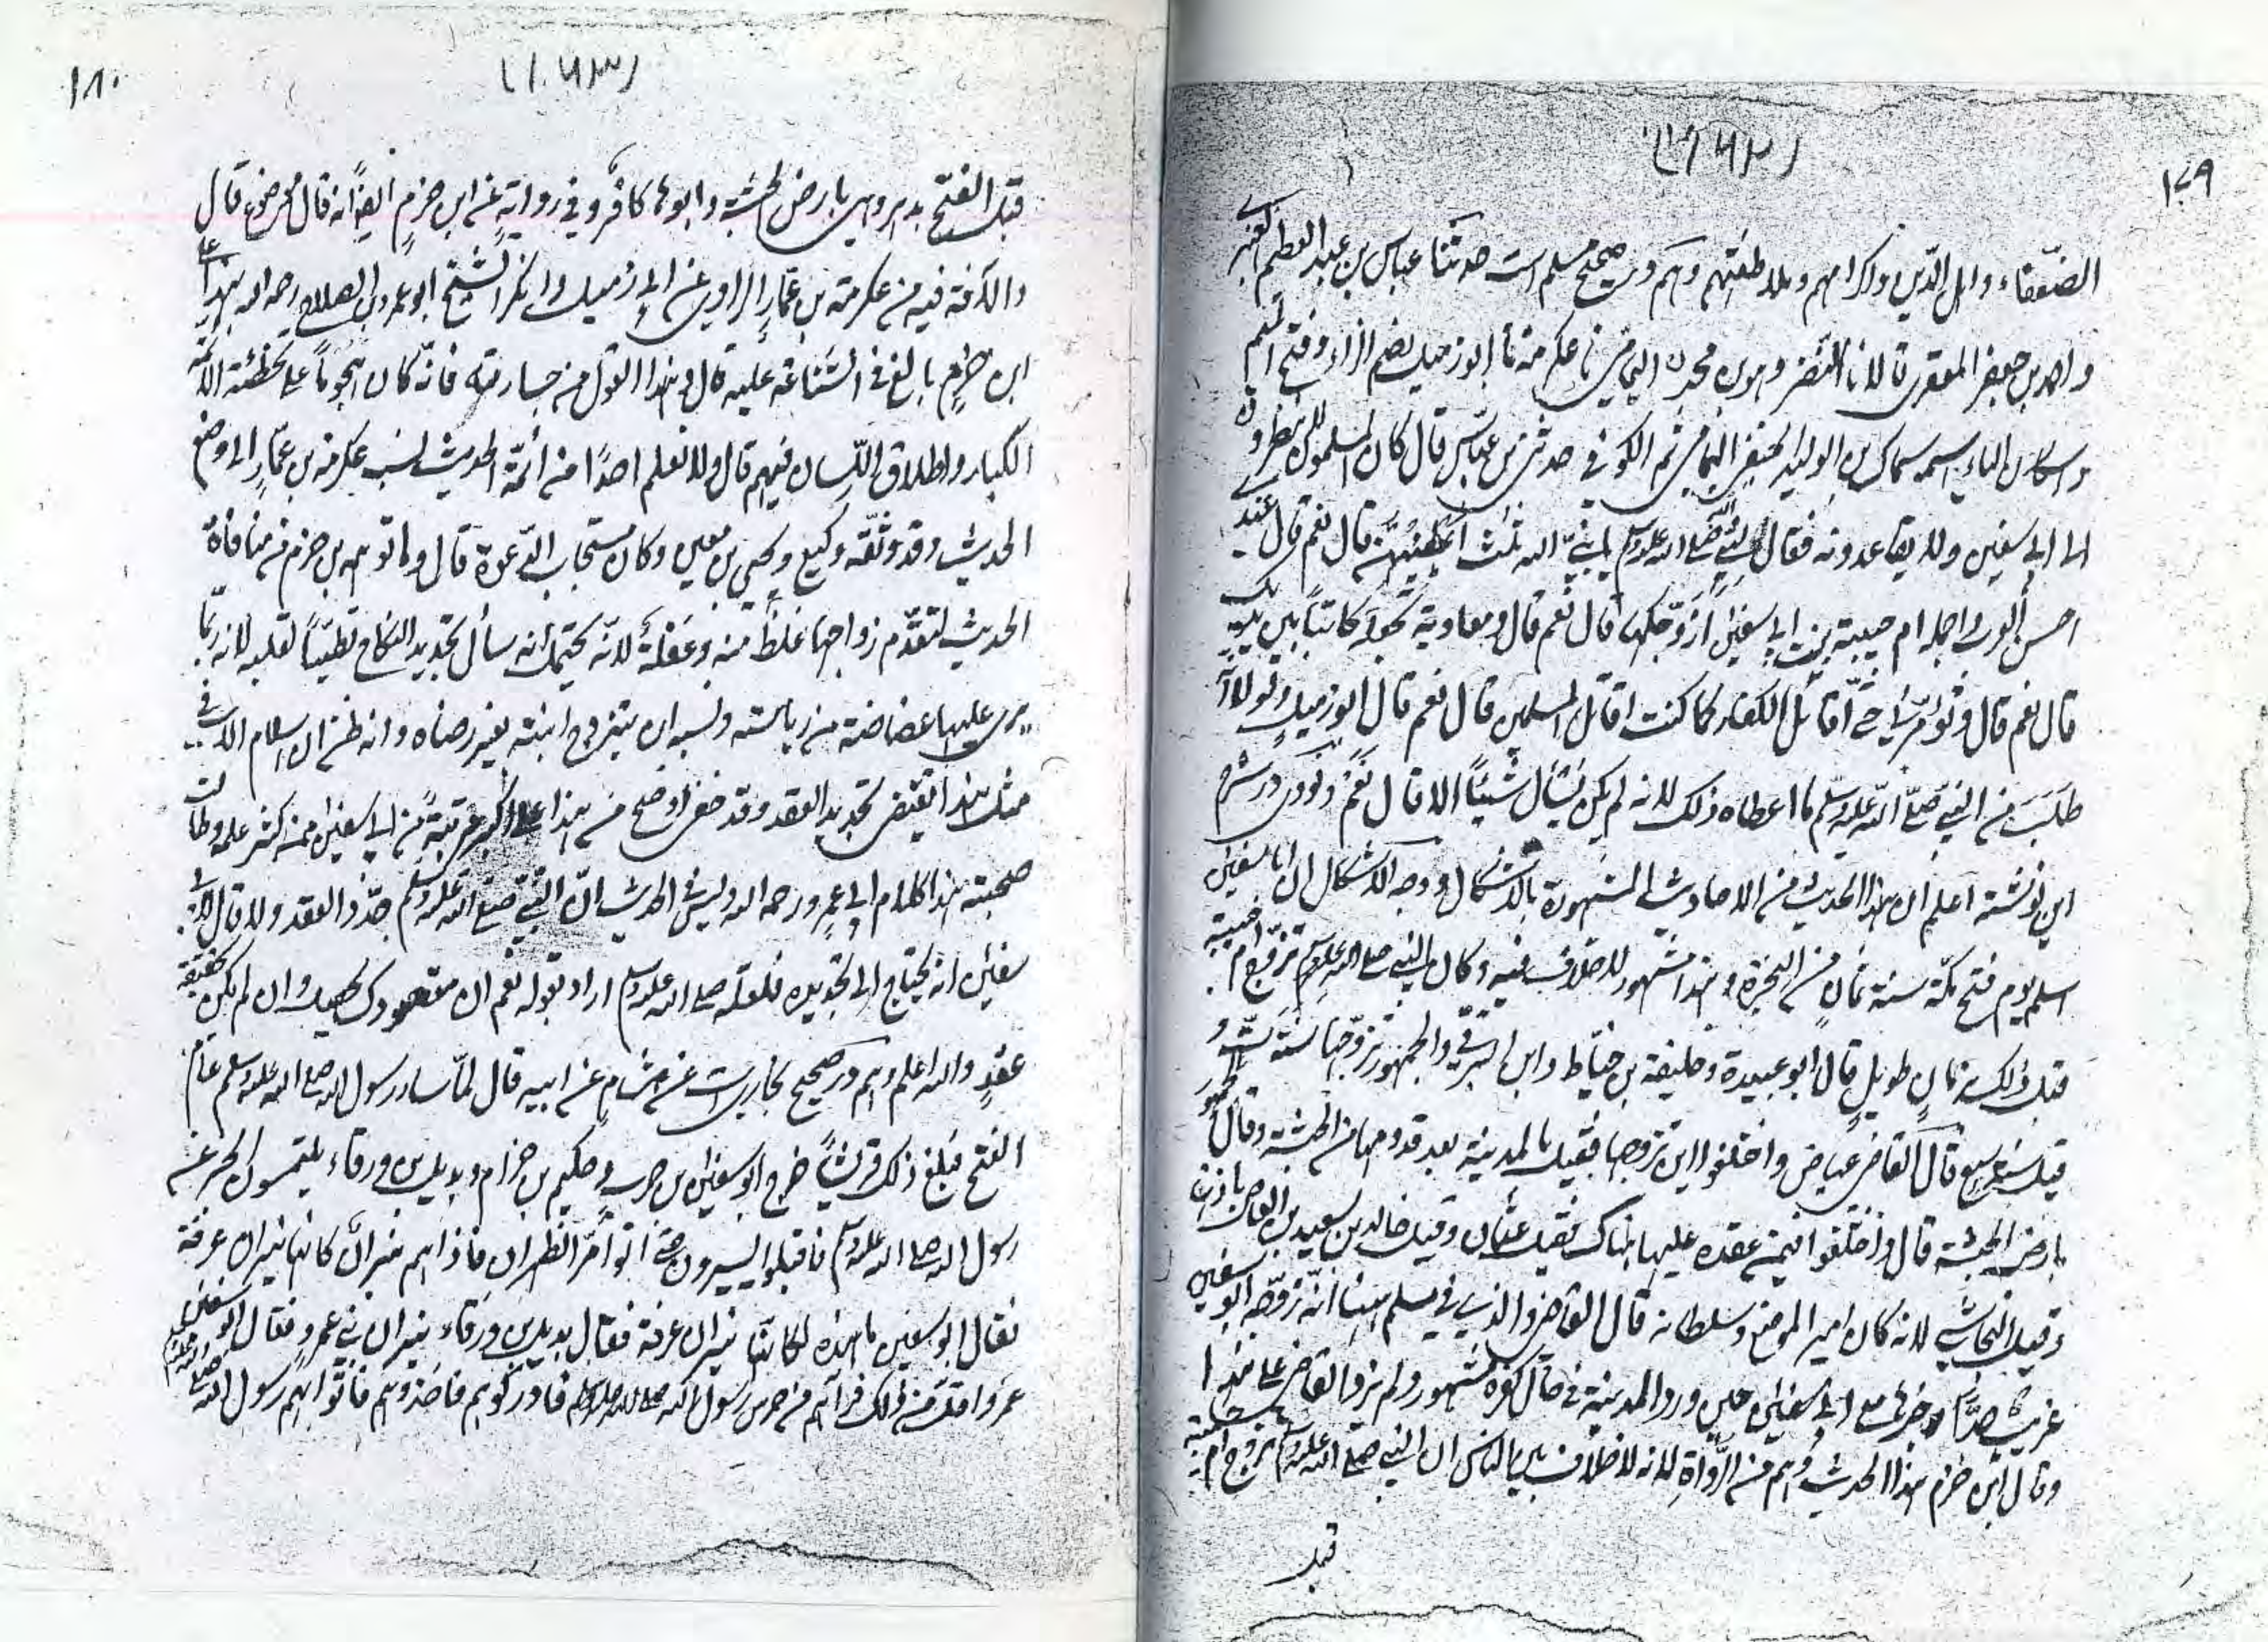 ١٧٩
الضعفاء واهل الدين واكرامهم وملاطفتهم وهم در صحيح مسلم است حدثنا عباس بن عبد العظيم العنبرى
واحمد بن جعفر المعقرى قالا نا النضر وهو ابن محمد اليمامى نا عكرمة نا ابو زميل بضم الزاء وفتح الميم
واسكان الياء اسمه سماك بن الوليد الحنفى اليمامى ثم الكوفى حدثنى ابن عباس قال كان المسلمون لا ينظرون
الى ابى سفين ولا يقاعدونه فقال للنبى صلى الله عليه وسلم يا نبى الله ثلث اعطنيهن قال نعم قال عندى
احسن العرب واجمله ام حبيبة بنت ابى سفين ازوجكها قال نعم قال ومعاوية تجعله كاتبا بين يديك
قال نعم قال وتؤمرنى حتى اقاتل الكفار كما كنت اقاتل المسلمين قال نعم قال ابو زميل ولولا انه
طلب من النبى صلى الله عليه وسلم ما اعطاه ذلك لانه لم يكن يسأل شيئا الا قال نعم ونووى در شرح
اين نوشته اعلم ان هذا الحديث من الاحاديث المشهورة بالاشكال ووجه الاشكال ان ابا سفين
اسلم يوم فتح مكة سنة ثمان من الهجرة وهذا مشهور لا خلاف فيه وكان النبى صلى الله عليه وسلم تزوج ام حبيبة
قبل ذلك بزمان طويل قال ابو عبيدة وخليفة بن خياط وابن البرقى والجمهور تزوجها سنة ست و
قيل سنة سبع قال القاضى عياض واختلفوا اين تزوجها فقيل بالمدينة بعد قدومها من الحبشة وقال الجمهور
بارض الحبشة قال واختلفوا فيمن عقده عليها هناك فقيل عثمان وقيل خالد بن سعيد بن العاص باذنها
وقيل النجاشى لانه كان امير الموضع وسلطانه قال القاضى والذى فى مسلم هنا انه زوجه ابو سفين
غريب جدا وخبرها مع ابى سفين حين ورد المدينة فى حال كفره مشهور ولم يزد القاضى على هذا
وقال ابن حزم هذا الحديث وهم من الرواة لانه لا خلاف بين الناس ان النبى صلى الله عليه وسلم تزوج ام حبيبة
قبل
١٨٠
قبل الفتح بدهر وهى بارض الحبشة وابوها كافر وفى رواية عن ابن حزم ايضا انه قال موضوع قال
والآفة فيه من عكرمة بن عمار الراوى عن ابى زميل وانكر الشيخ ابو عمرو بن الصلاح رحمه الله هذا على
ابن حزم بالغ فى الشناعة عليه قال وهذا القول من جسارته فانه كان هجوما على تخطئة الائمة
الكبار واطلاق اللسان فيهم قال ولا نعلم احدا من أئمة الحديث نسب عكرمة بن عمار الى وضع
الحديث وقد وثقه وكيع ويحيى بن معين وكان مستجاب الدعوة قال وما توهمه بن حزم من منافاة
الحديث لتقدم زواجها غلط منه وغفلة لانه يحتمل انه سأل تجديد النكاح تطييبا لقلبه لانه ربما
يرى عليها غضاضة من رياسته ونسبه ان يتزوج ابنته بغير رضاه وانه ظن ان اسلام الاب فى
مثل هذا يقتضى تجديد العقد وقد خفى اوضح من هذا على اكبر مرتبة من ابى سفين ممن كثر علمه وطالت
صحبته هذا كلام ابى عمرو رحمه الله وليس فى الحديث ان النبى صلى الله عليه وسلم جدد العقد ولا قال لابى
سفين انه يحتاج الى تجديده فلعله صلى الله عليه وسلم اراد بقوله نعم ان مقصودك يحصل وان لم يكن بحقيقة
عقد والله اعلم وهم در صحيح بخاريست عن هشام عن ابيه قال لما سار رسول الله صلى الله عليه وسلم عام
الفتح فبلغ ذلك قريشا خرج ابو سفين بن حرب وحكيم بن حزام وبديل بن ورقاء يلتمسون الخبر عن
رسول الله صلى الله عليه وسلم فاقبلوا يسيرون حتى اتوا مر الظهران فاذا هم بنيران كانها نيران عرفة
فقال ابو سفين ما هذه لكانها نيران عرفة فقال بديل بن ورقاء نيران بنى عمرو فقال ابو سفين
عمرو اقل من ذلك فرآهم من حرس رسول الله صلى الله عليه وسلم فادركوهم فاخذوهم فاتوا بهم رسول الله صلى الله عليه وسلم